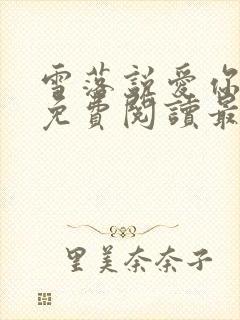 雪落說愛你
免費閱讀最
里美奈奈子